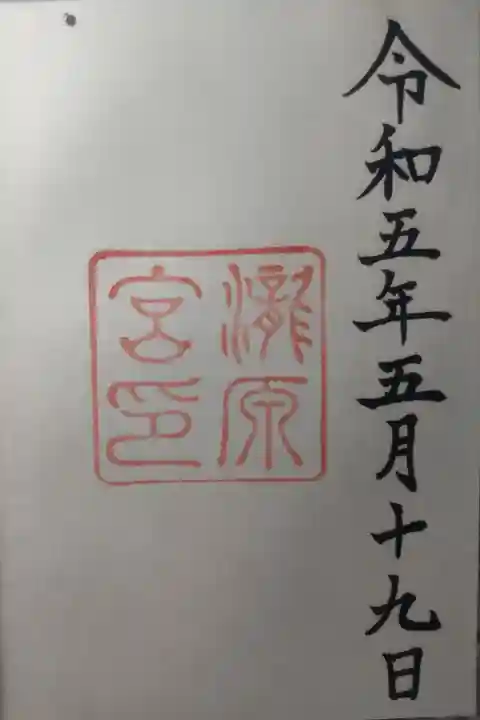 令和五年五月十九日
瀧原
宮印